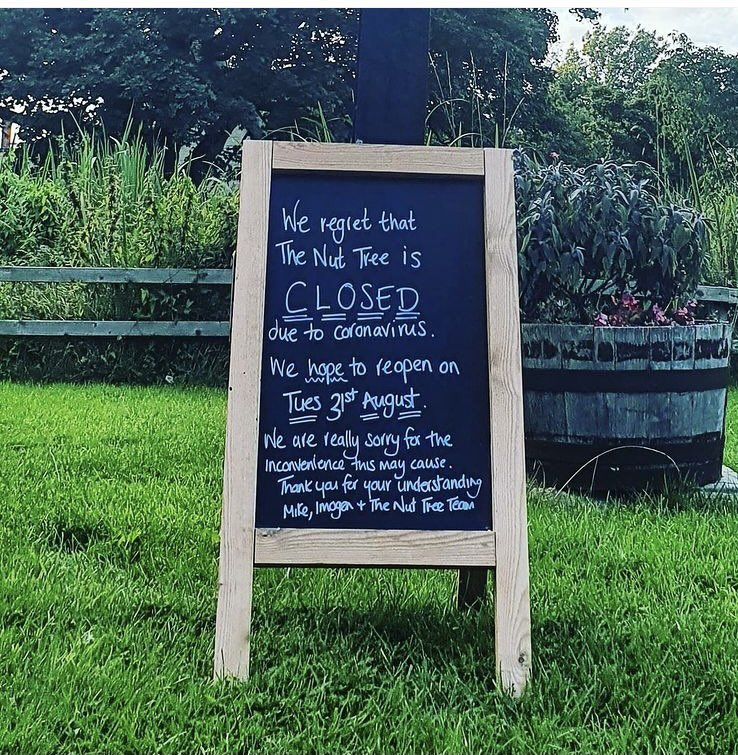 We regret that
The Nut Tree is
CLOSED
due to coronavirus.
We hope to reopen on
Tues 31st August.
We are really sorry for the
inconvenience this may cause.
Thank you for your understanding
Mike, Imogen + The Nut Tree Team